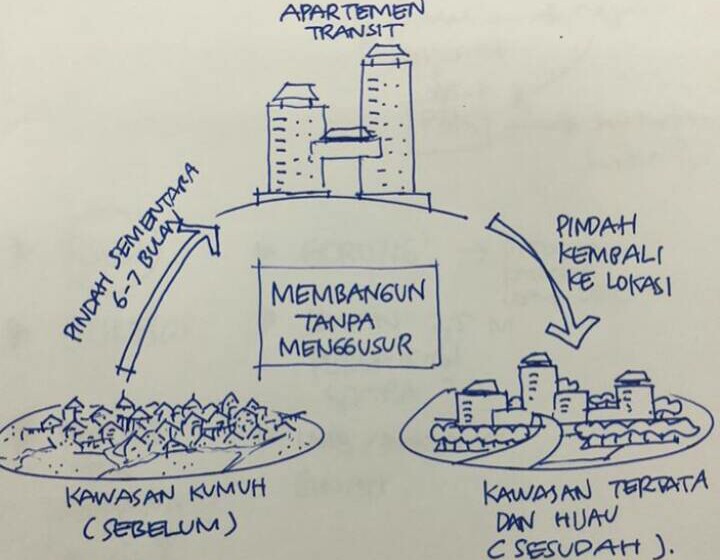 APARTEMEN
TRANSIT
PINDAH SEMENTARA
6-7 BULAN
PINDAH
KEMBALI
KE LOKASI
MEMBANGUN
TANPA
MENGGUSUR
KAWASAN KUMUH
(SEBELUM)
KAWASAN TERTATA
DAN HIJAU
(SESUDAH).